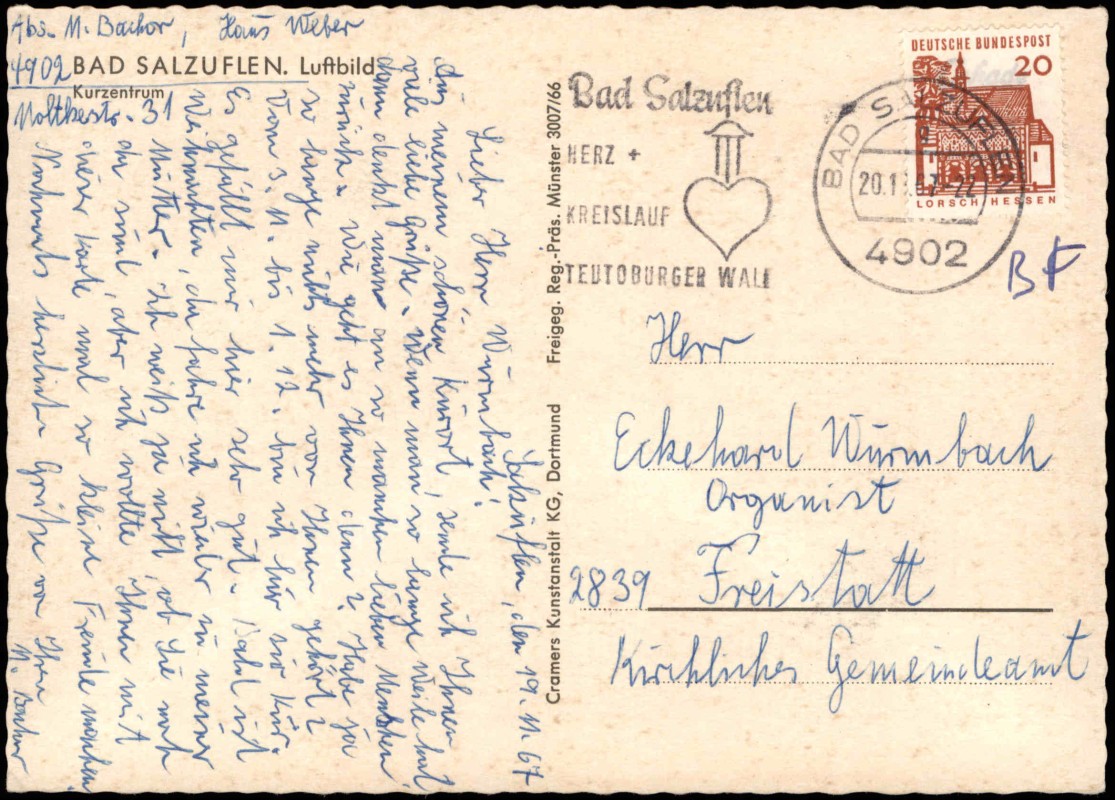 Abs. M. Bachor, Haus Weber
4902 BAD SALZUFLEN. Luftbild
Kurzentrum
Moltkestr. 31
Salzuflen, den 19.11.67
Lieber Herr Wurmbach!
Aus meinem schönen Kurort, sende ich Ihnen
viele liebe Grüße. Wenn man so lange Weile hat
dann denkt man an so manchen lieben Menschen
zurück. Wie geht es Ihnen denn? Habe ja
so lange nichts mehr von Ihnen gehört?
Vom 3.11. bis 1.12. bin ich hier zur Kur.
Es gefällt mir hier sehr gut. Bald ist
Weihnachten, da fahre ich wieder zu meiner
Mutter. Ich weiß ja nicht ob Sie noch
da sind, aber ich wollte Ihnen mit
dieser Karte mal so kleine Freude machen.
Nochmals herzliche Grüße von Ihrer
M. Bachor
Cramers Kunstanstalt KG, Dortmund Freigeg. Reg.-Präs. Münster 3007/66
Bad Salzuflen
HERZ +
KREISLAUF
TEUTOBURGER WALD
BAD SALZUFLEN
4902
DEUTSCHE BUNDESPOST
20
LORSCH HESSEN
BF
Herr
Eckehard Wurmbach
Organist
2839 Freistatt
Kirchliches Gemeindeamt